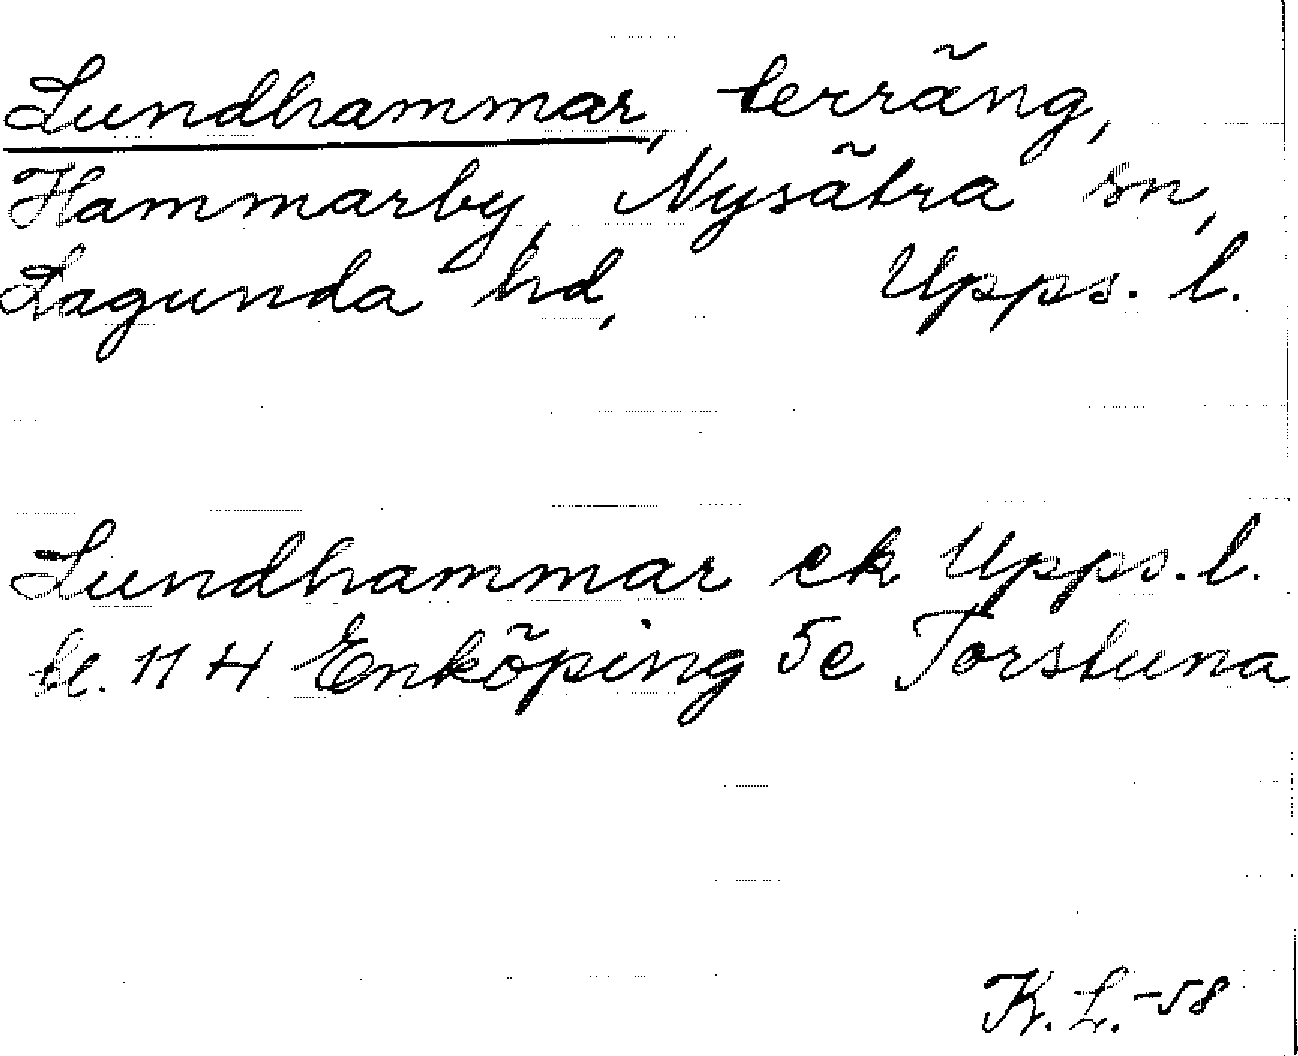 Lundhammar, terräng,
Hammarby, Nysätra sn,
Lagunda hd, Upps. l.
Lundhammar ek Upps. l.
bl. 11 H Enköping 5e Torstuna
K. L. -58